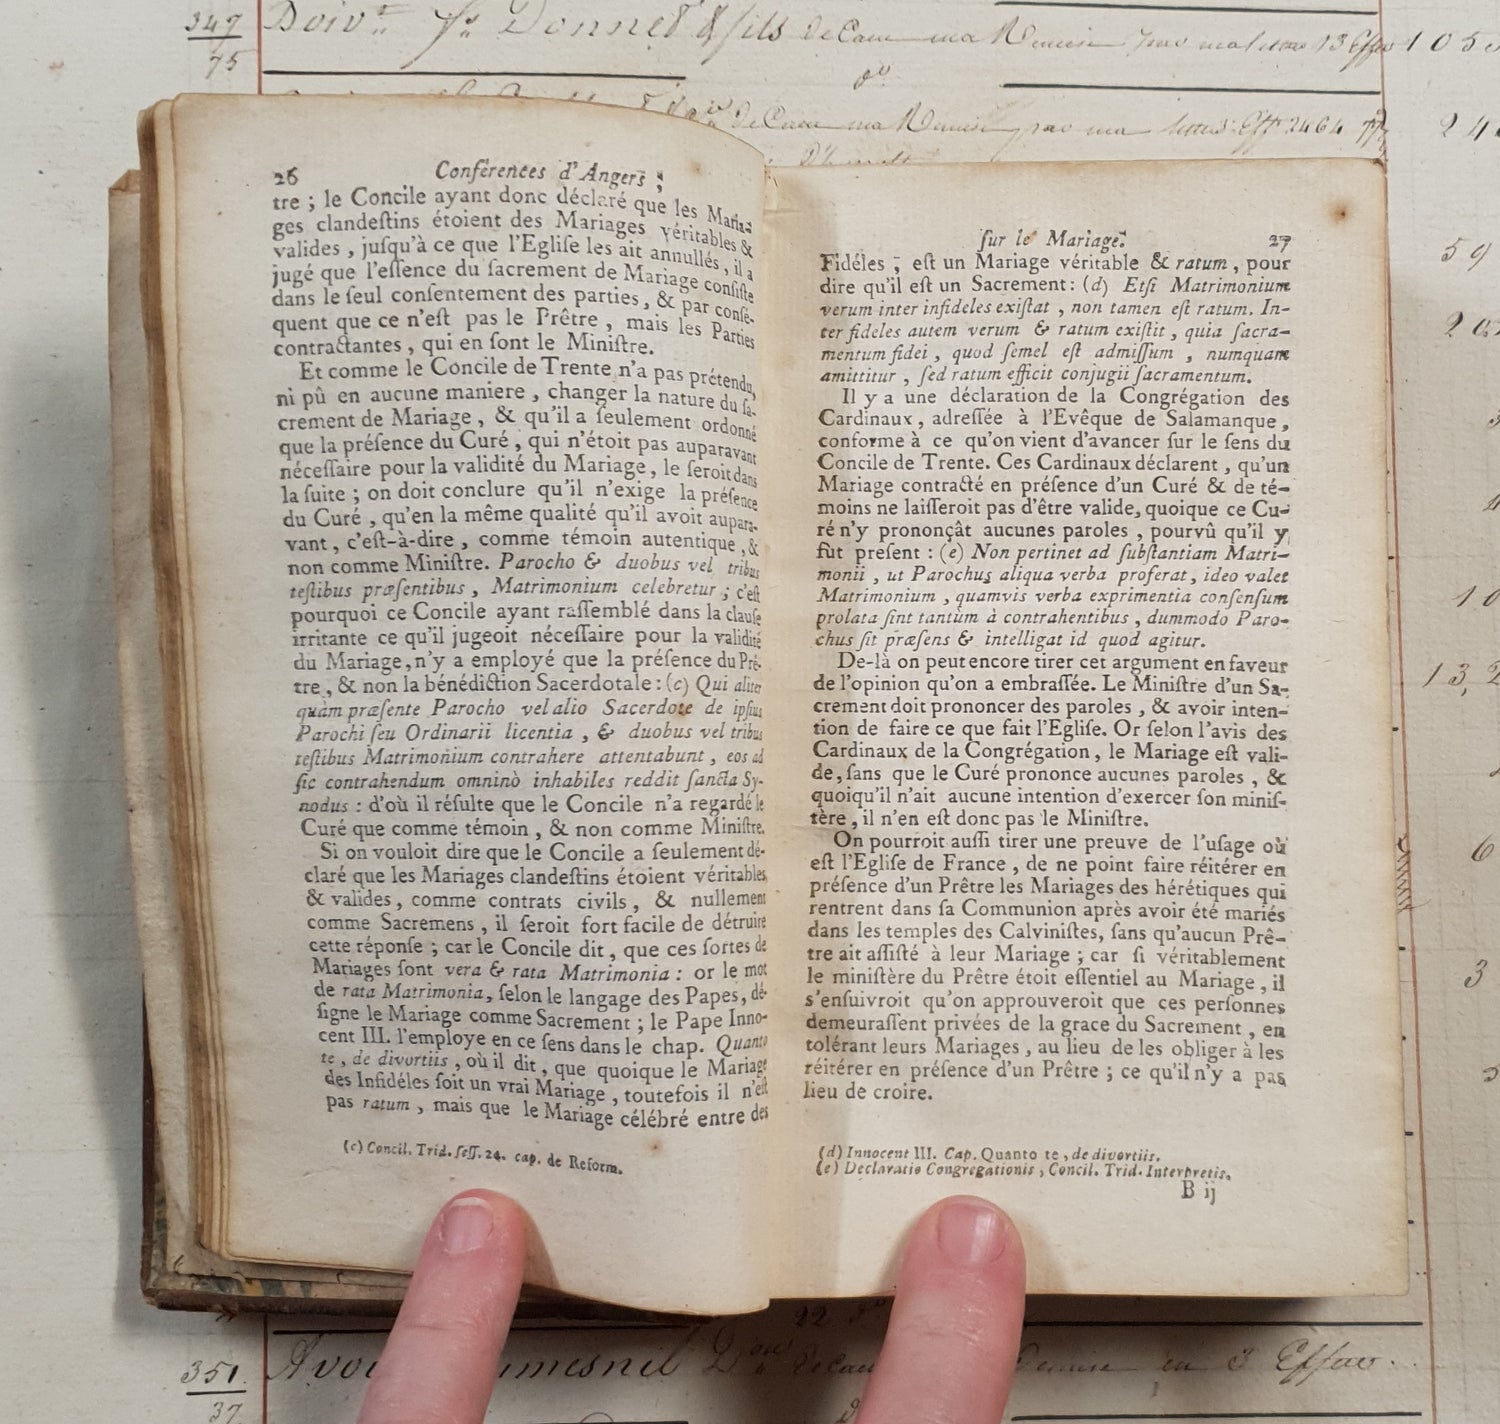 347
75
Doiv.t Sr. Donnet & fils de Caen ma Remise par ma lettre 13 Effets 105
do
de Caen ma Remise par ma lettre Effs 2464 77 24
26 Conférences d'Angers ;
tre ; le Concile ayant donc déclaré que les Maria-
ges clandeſtins étoient des Mariages véritables &
valides , juſqu'à ce que l'Egliſe les ait annullés , il a
jugé que l'eſſence du ſacrement de Mariage conſiſte
dans le ſeul conſentement des parties , & par conſé-
quent que ce n'eſt pas le Prêtre , mais les Parties
contractantes , qui en ſont le Miniſtre.
Et comme le Concile de Trente n'a pas prétendu,
ni pû en aucune maniere , changer la nature du ſa-
crement de Mariage , & qu'il a ſeulement ordonné
que la préſence du Curé , qui n'étoit pas auparavant
néceſſaire pour la validité du Mariage , le ſeroit dans
la ſuite ; on doit conclure qu'il n'exige la préſence
du Curé , qu'en la même qualité qu'il avoit aupara-
vant , c'eſt-à-dire , comme témoin autentique , &
non comme Miniſtre. Parocho & duobus vel tribus
teſtibus præſentibus , Matrimonium celebretur ; c'eſt
pourquoi ce Concile ayant raſſemblé dans la clauſe
irritante ce qu'il jugeoit néceſſaire pour la validité
du Mariage, n'y a employé que la préſence du Prê-
tre , & non la bénédiction Sacerdotale : (c) Qui aliter
quàm præſente Parocho vel alio Sacerdote de ipſius
Parochi ſeu Ordinarii licentia , & duobus vel tribus
teſtibus Matrimonium contrahere attentabunt , eos ad
ſic contrahendum omninò inhabiles reddit ſancta Sy-
nodus : d'où il réſulte que le Concile n'a regardé le
Curé que comme témoin , & non comme Miniſtre.
Si on vouloit dire que le Concile a ſeulement dé-
claré que les Mariages clandeſtins étoient véritables
& valides , comme contrats civils , & nullement
comme Sacremens , il ſeroit fort facile de détruire
cette réponſe ; car le Concile dit , que ces ſortes de
Mariages ſont vera & rata Matrimonia : or le mot
de rata Matrimonia, ſelon le langage des Papes, dé-
ſigne le Mariage comme Sacrement ; le Pape Inno-
cent III. l'employe en ce ſens dans le chap. Quanto
te , de divortiis , où il dit , que quoique le Mariage
des Infidéles ſoit un vrai Mariage , toutefois il n'eſt
pas ratum , mais que le Mariage célébré entre des
(c) Concil. Trid. ſeſſ. 24. cap. de Reform.
ſur le Mariage. 27
Fidéles , eſt un Mariage véritable & ratum , pour
dire qu'il eſt un Sacrement : (d) Etſi Matrimonium
verum inter infideles exiſtat , non tamen eſt ratum. In-
ter fideles autem verum & ratum exiſtit , quia ſacra-
mentum fidei , quod ſemel eſt admiſſum , numquam
amittitur , ſed ratum efficit conjugii ſacramentum.
Il y a une déclaration de la Congrégation des
Cardinaux , adreſſée à l'Evêque de Salamanque ,
conforme à ce qu'on vient d'avancer ſur le ſens du
Concile de Trente. Ces Cardinaux déclarent , qu'un
Mariage contracté en préſence d'un Curé & de té-
moins ne laiſſeroit pas d'être valide, quoique ce Cu-
ré n'y prononçât aucunes paroles , pourvû qu'il y
fût preſent : (e) Non pertinet ad ſubſtantiam Matri-
monii , ut Parochus aliqua verba proferat, ideo valet
Matrimonium , quamvis verba exprimentia conſenſum
prolata ſint tantùm à contrahentibus , dummodo Paro-
chus ſit præſens & intelligat id quod agitur.
De-là on peut encore tirer cet argument en faveur
de l'opinion qu'on a embraſſée. Le Miniſtre d'un Sa-
crement doit prononcer des paroles , & avoir inten-
tion de faire ce que fait l'Egliſe. Or ſelon l'avis des
Cardinaux de la Congrégation , le Mariage eſt vali-
de, ſans que le Curé prononce aucunes paroles , &
quoiqu'il n'ait aucune intention d'exercer ſon miniſ-
tère , il n'en eſt donc pas le Miniſtre.
On pourroit auſſi tirer une preuve de l'uſage où
eſt l'Egliſe de France , de ne point faire réitérer en
préſence d'un Prêtre les Mariages des hérétiques qui
rentrent dans ſa Communion après avoir été mariés
dans les temples des Calviniſtes, ſans qu'aucun Prê-
tre ait aſſiſté à leur Mariage ; car ſi véritablement
le miniſtère du Prêtre étoit eſſentiel au Mariage , il
s'enſuivroit qu'on approuveroit que ces perſonnes
demeuraſſent privées de la grace du Sacrement , en
tolérant leurs Mariages , au lieu de les obliger à les
réitérer en préſence d'un Prêtre ; ce qu'il n'y a pas
lieu de croire.
(d) Innocent III. Cap. Quanto te , de divortiis.
(e) Declaratio Congregationis , Concil. Trid. Interpretis.
B ij
59
10
13,2
6
3
351
37
en 3 Effets